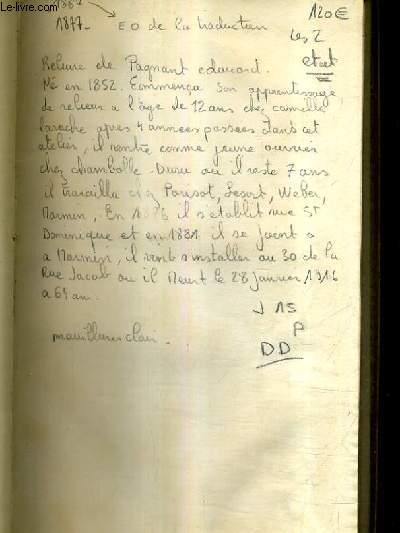 Le-livre.com
1887
1877- EO de la traduction
120€
les 2
et et
Reliure de Pagnant edouard.
Né en 1852. Commença son apprentissage
de relieur a l'âge de 12 ans chez camille
laroche apres 4 années passées dans cet
atelier, il rentre comme jeune ouvrier
chez chambolle-Duru ou il reste 7 ans
il travailla chez Pouget, Weber,
Marmin, En 1876 il s'etablit rue St
Dominique et en 1881 il se joent a
a Marmin, il vint s'installer au 30 de la
Rue Jacob ou il Meurt le 28 janvier 1916
a 64 an.
↓ 15
P
DD
mouillures clair.